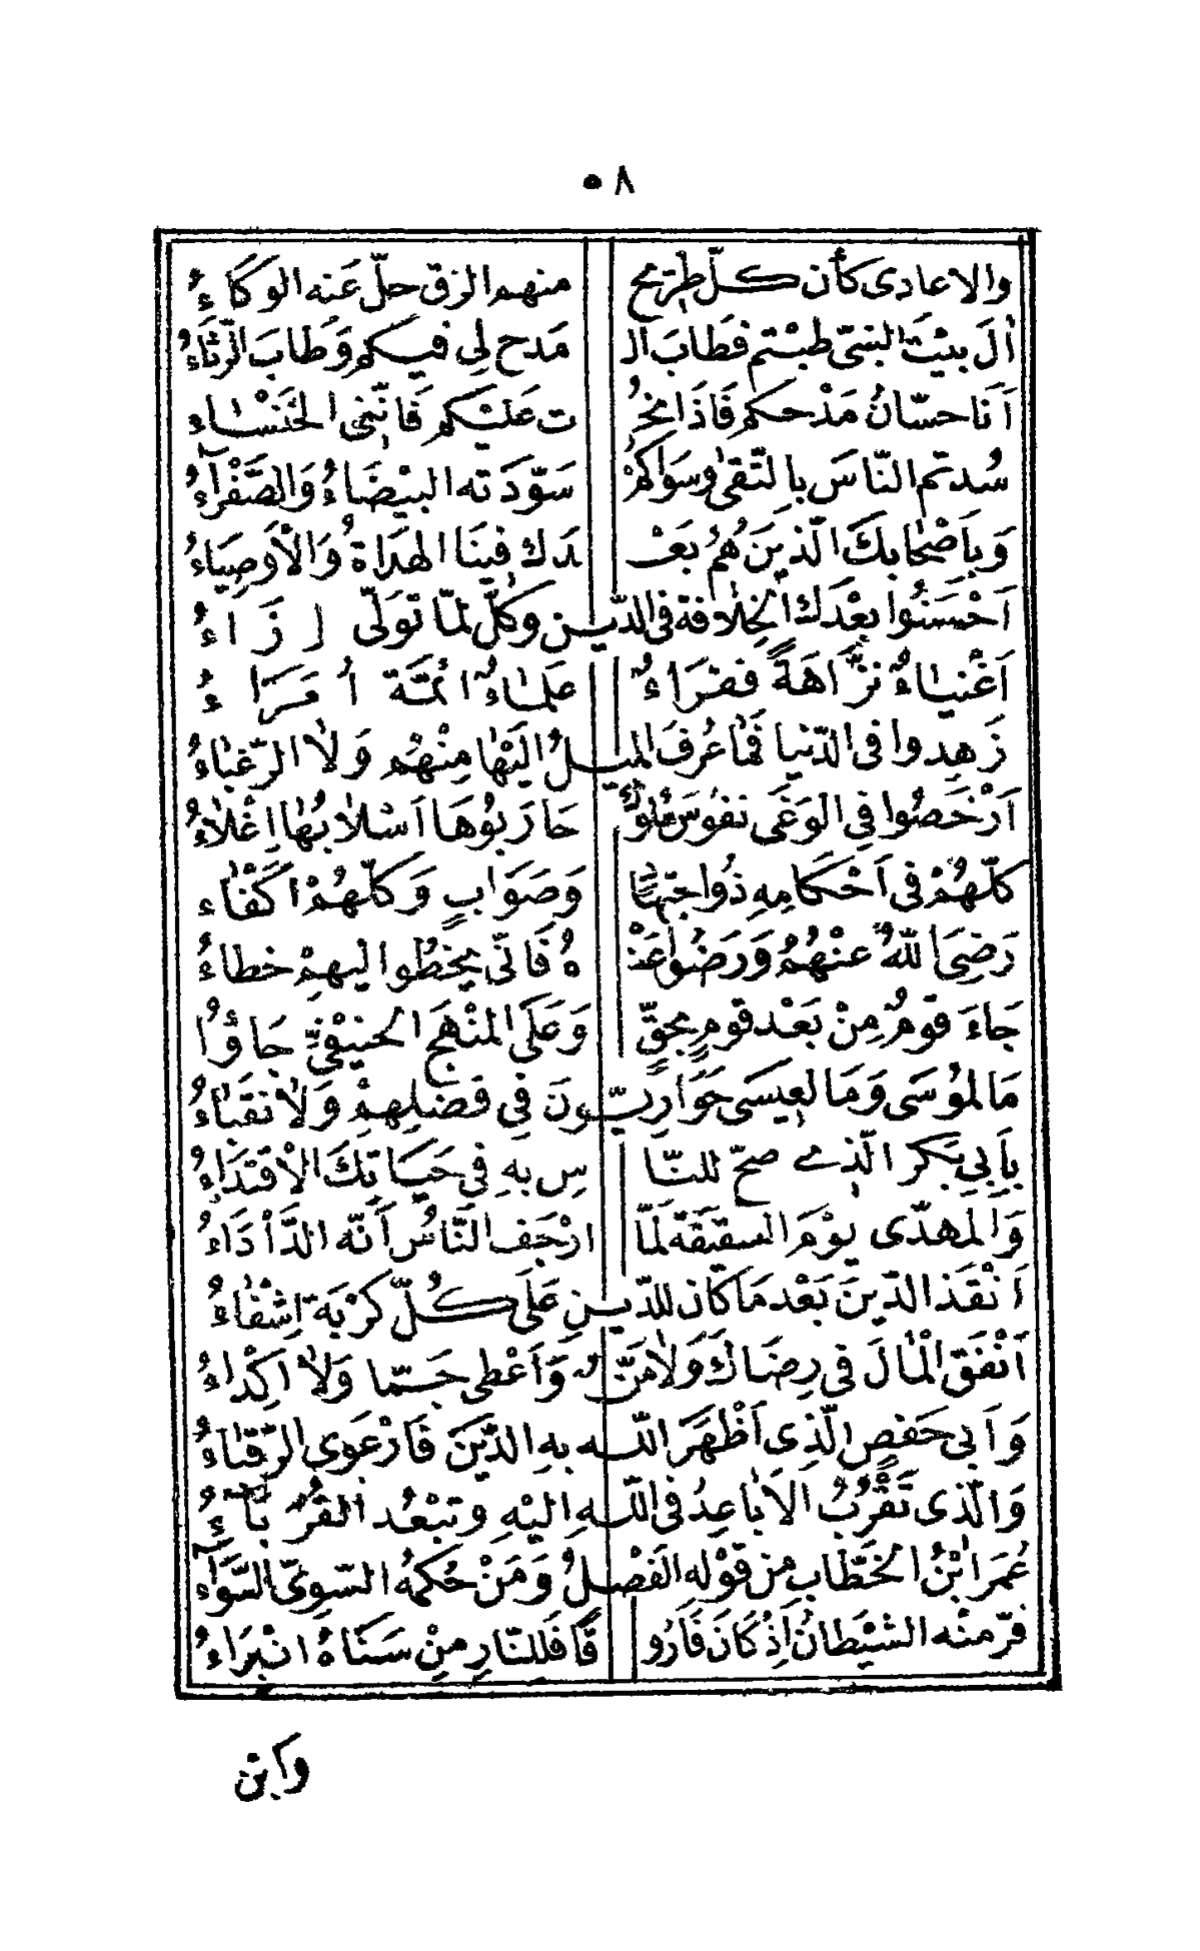 ٥٨
والاعادى كأن كلّ طريح منهم الزق حلّ عنه الوكاءُ
اٰلَ بيْتَ النبىّ طبْتم فطابَ الـ مَدح لِى فيكم وَطابَ الرّثاءُ
اَنَا حسّانُ مَدْحكم فَاذَا نحْـ ت عَليْكم فَانّنى الخَنسْاء
سُدتم النّاسَ بِالتّقىٰ وسوَاكمْ سَوّدَته البيْضَاءُ وَالصَّفْرَآءُ
وَبِاَصْحَابكَ الّذينَ هُمُ بَعْـ ـدَك فينَا الهدَاةُ وَالْاَوصِيَاءُ
اَحْسَنُوا بعْدَك الخِلَافة فى الدّيـن وكُلّ لمّا توَلّى اِزَاءُ
اَغْنيَاءُ نزَّاهَةً فقرَاءُ علَمَاءُ ائمّة اُمَرَاءُ
زَهِدوا فى الدّنيا فمَا عُرفَ الميـلُ اليَهَا مِنْهُم وَلَا الرّغبَاءُ
اَرْخَصُوا فِى الوَغَى نفوسَ ملوكٍ حَارَبُوهَا اَسْلَابُهَا اِغْلَاءُ
كلّهُمْ فى اَحْكامِهِ ذُو اجتهَادٍ وَصَوَابٍ وَكلّهُمْ اكَفْاء
رَضِىَ اللّهُ عنْهُمُ وَرَضُوا عَنْـ ـهُ فَانّى يخطُوا ليهِمْ خطاءُ
جَاءَ قومٌ مِنْ بَعْد قومٍ بحقٍّ وَعَلَى المنْهَج الحنيْفىِّ جَاؤُا
مَالموُسَى وَمَا لعِيسَى حَوَارِيّـونَ فِى فَضلِهِمْ وَلَا نقَبَاءُ
بِاَبِى بَكر الّذى صحّ للنّـا سِ بهِ فِى حَيَاتِكَ الْاقتدَاءُ
وَالمهدّى يوْمَ السقيفَة لَمّا ارْجَف النّاسُ اَنّه الدَّأدَاءُ
اَنْقَذ الدّينَ بَعْد مَا كَان للدّيـنِ عَلَى كُلّ كرْبَة اِشْفاءُ
اَنْفَقَ الْمَالَ فى رِضَاكَ وَلَا مَنّـٌ وَاَعْطى جَمّا وَلَا اكْدَاءُ
وَاَبى حَفصٍ الّذِى اَظْهَرَ اللّـه بهِ الدّينَ فَارْعَوى الرّقبَاءُ
وَالّذى تَقْرُبُ الاَبَاعِدُ فى اللّـهِ اليْهِ وتبْعُد القُرَبَآءُ
عُمَر ابْنُ الخَطّاب من قوْله الفَصْـلُ وَمَنْ حُكمهُ السّوِىّ السّوَآء
فرّ منْه الشيْطانُ اِذْ كَانَ فَارُو قًا فَلِلنّارِ مِنْ سَنَاهُ انْبرَاءُ
وابن